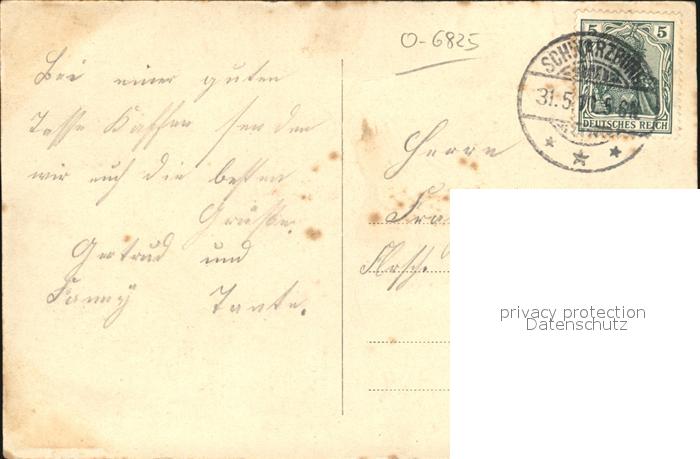 O-6825
5 5
DEUTSCHES REICH
31.5.10.5-6N.
Bei einer guten
Tasse Kaffee senden
wir euch die besten
Grüße.
Gertrud und
Fanny Tante.
Herrn
Fra
privacy protection
Datenschutz